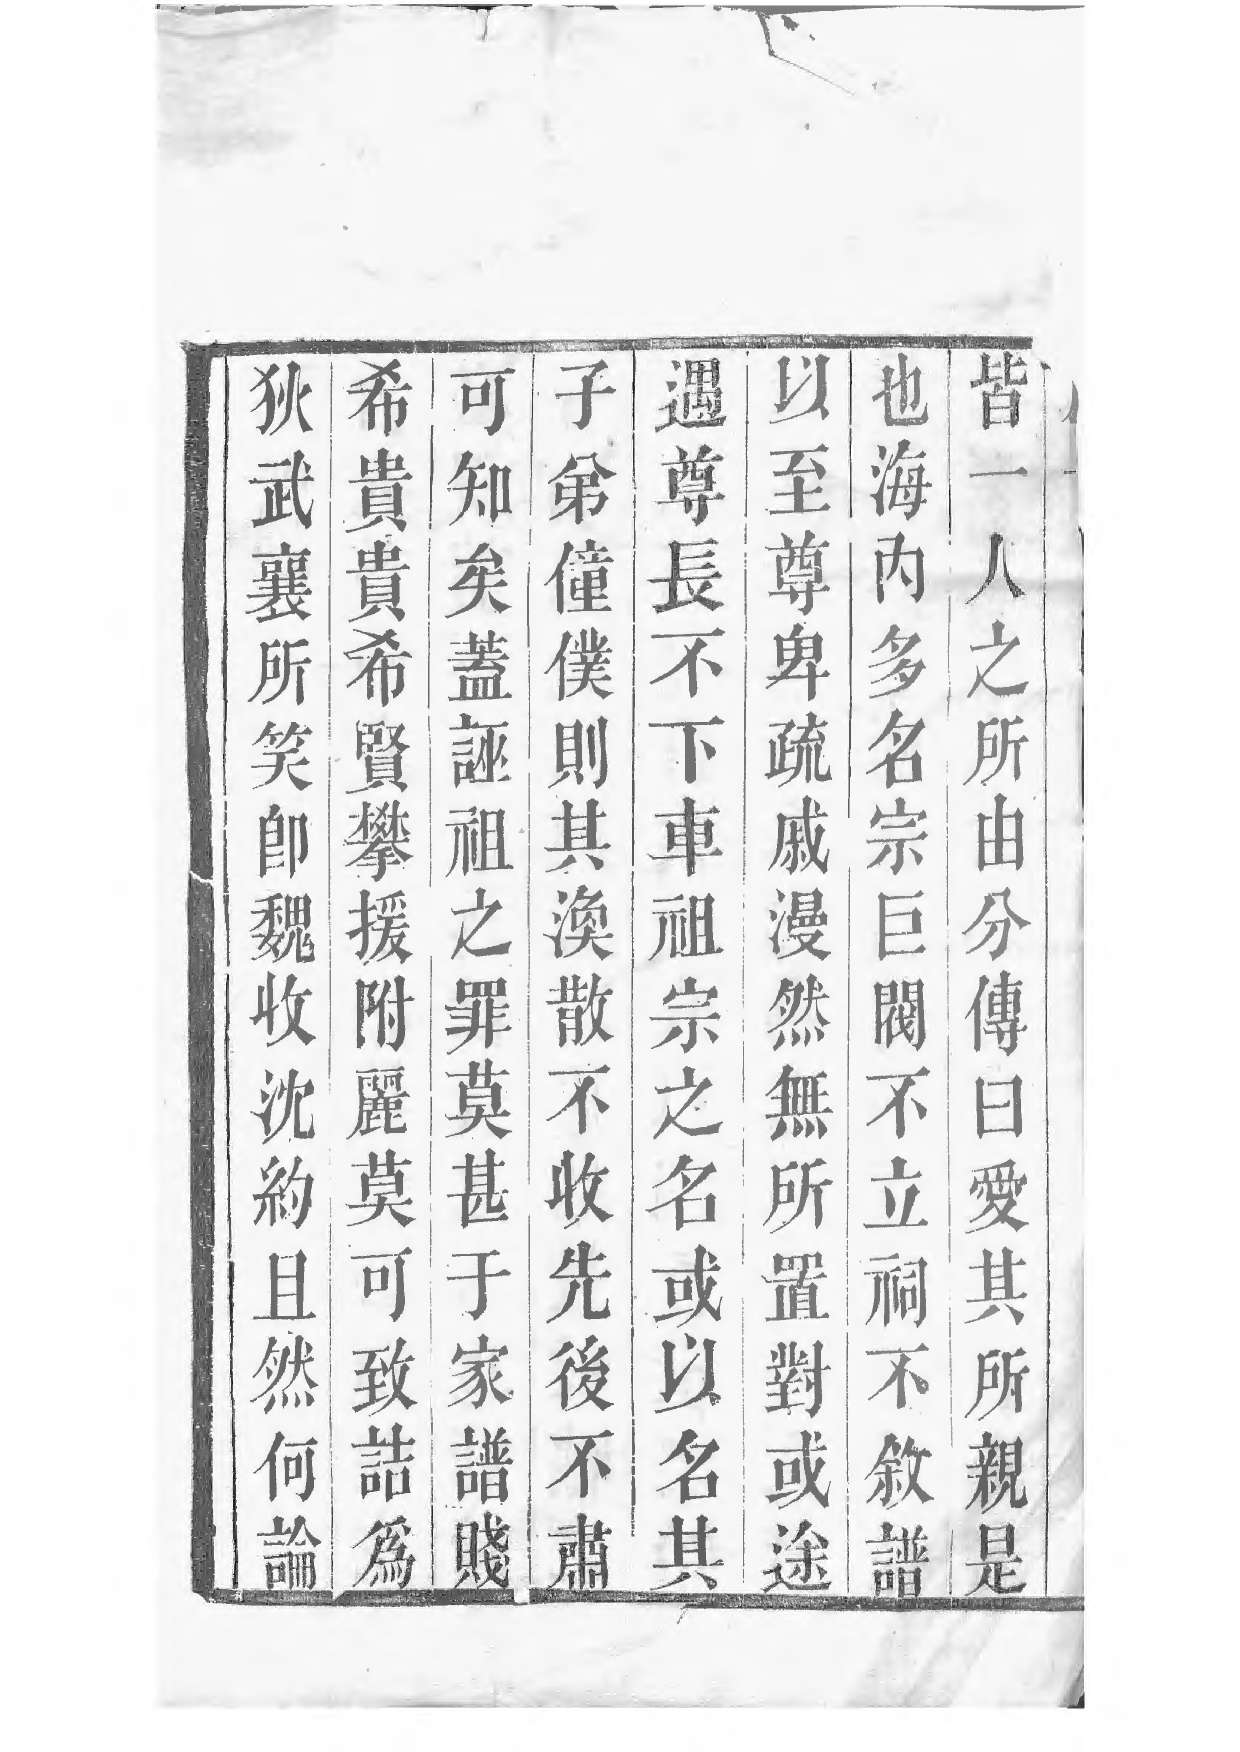 皆一人之所由分傳曰愛其所親是
也海內多名宗巨閥不立祠不敘譜
以至尊卑疏戚漫然無所置對或途
遇尊長不下車祖宗之名或以名其
子弟僮僕則其渙散不收先後不肅
可知矣蓋誣祖之罪莫甚于家譜賤
希貴貴希賢攀援附麗莫可致詰爲
狄武襄所笑卽魏收沈約且然何論